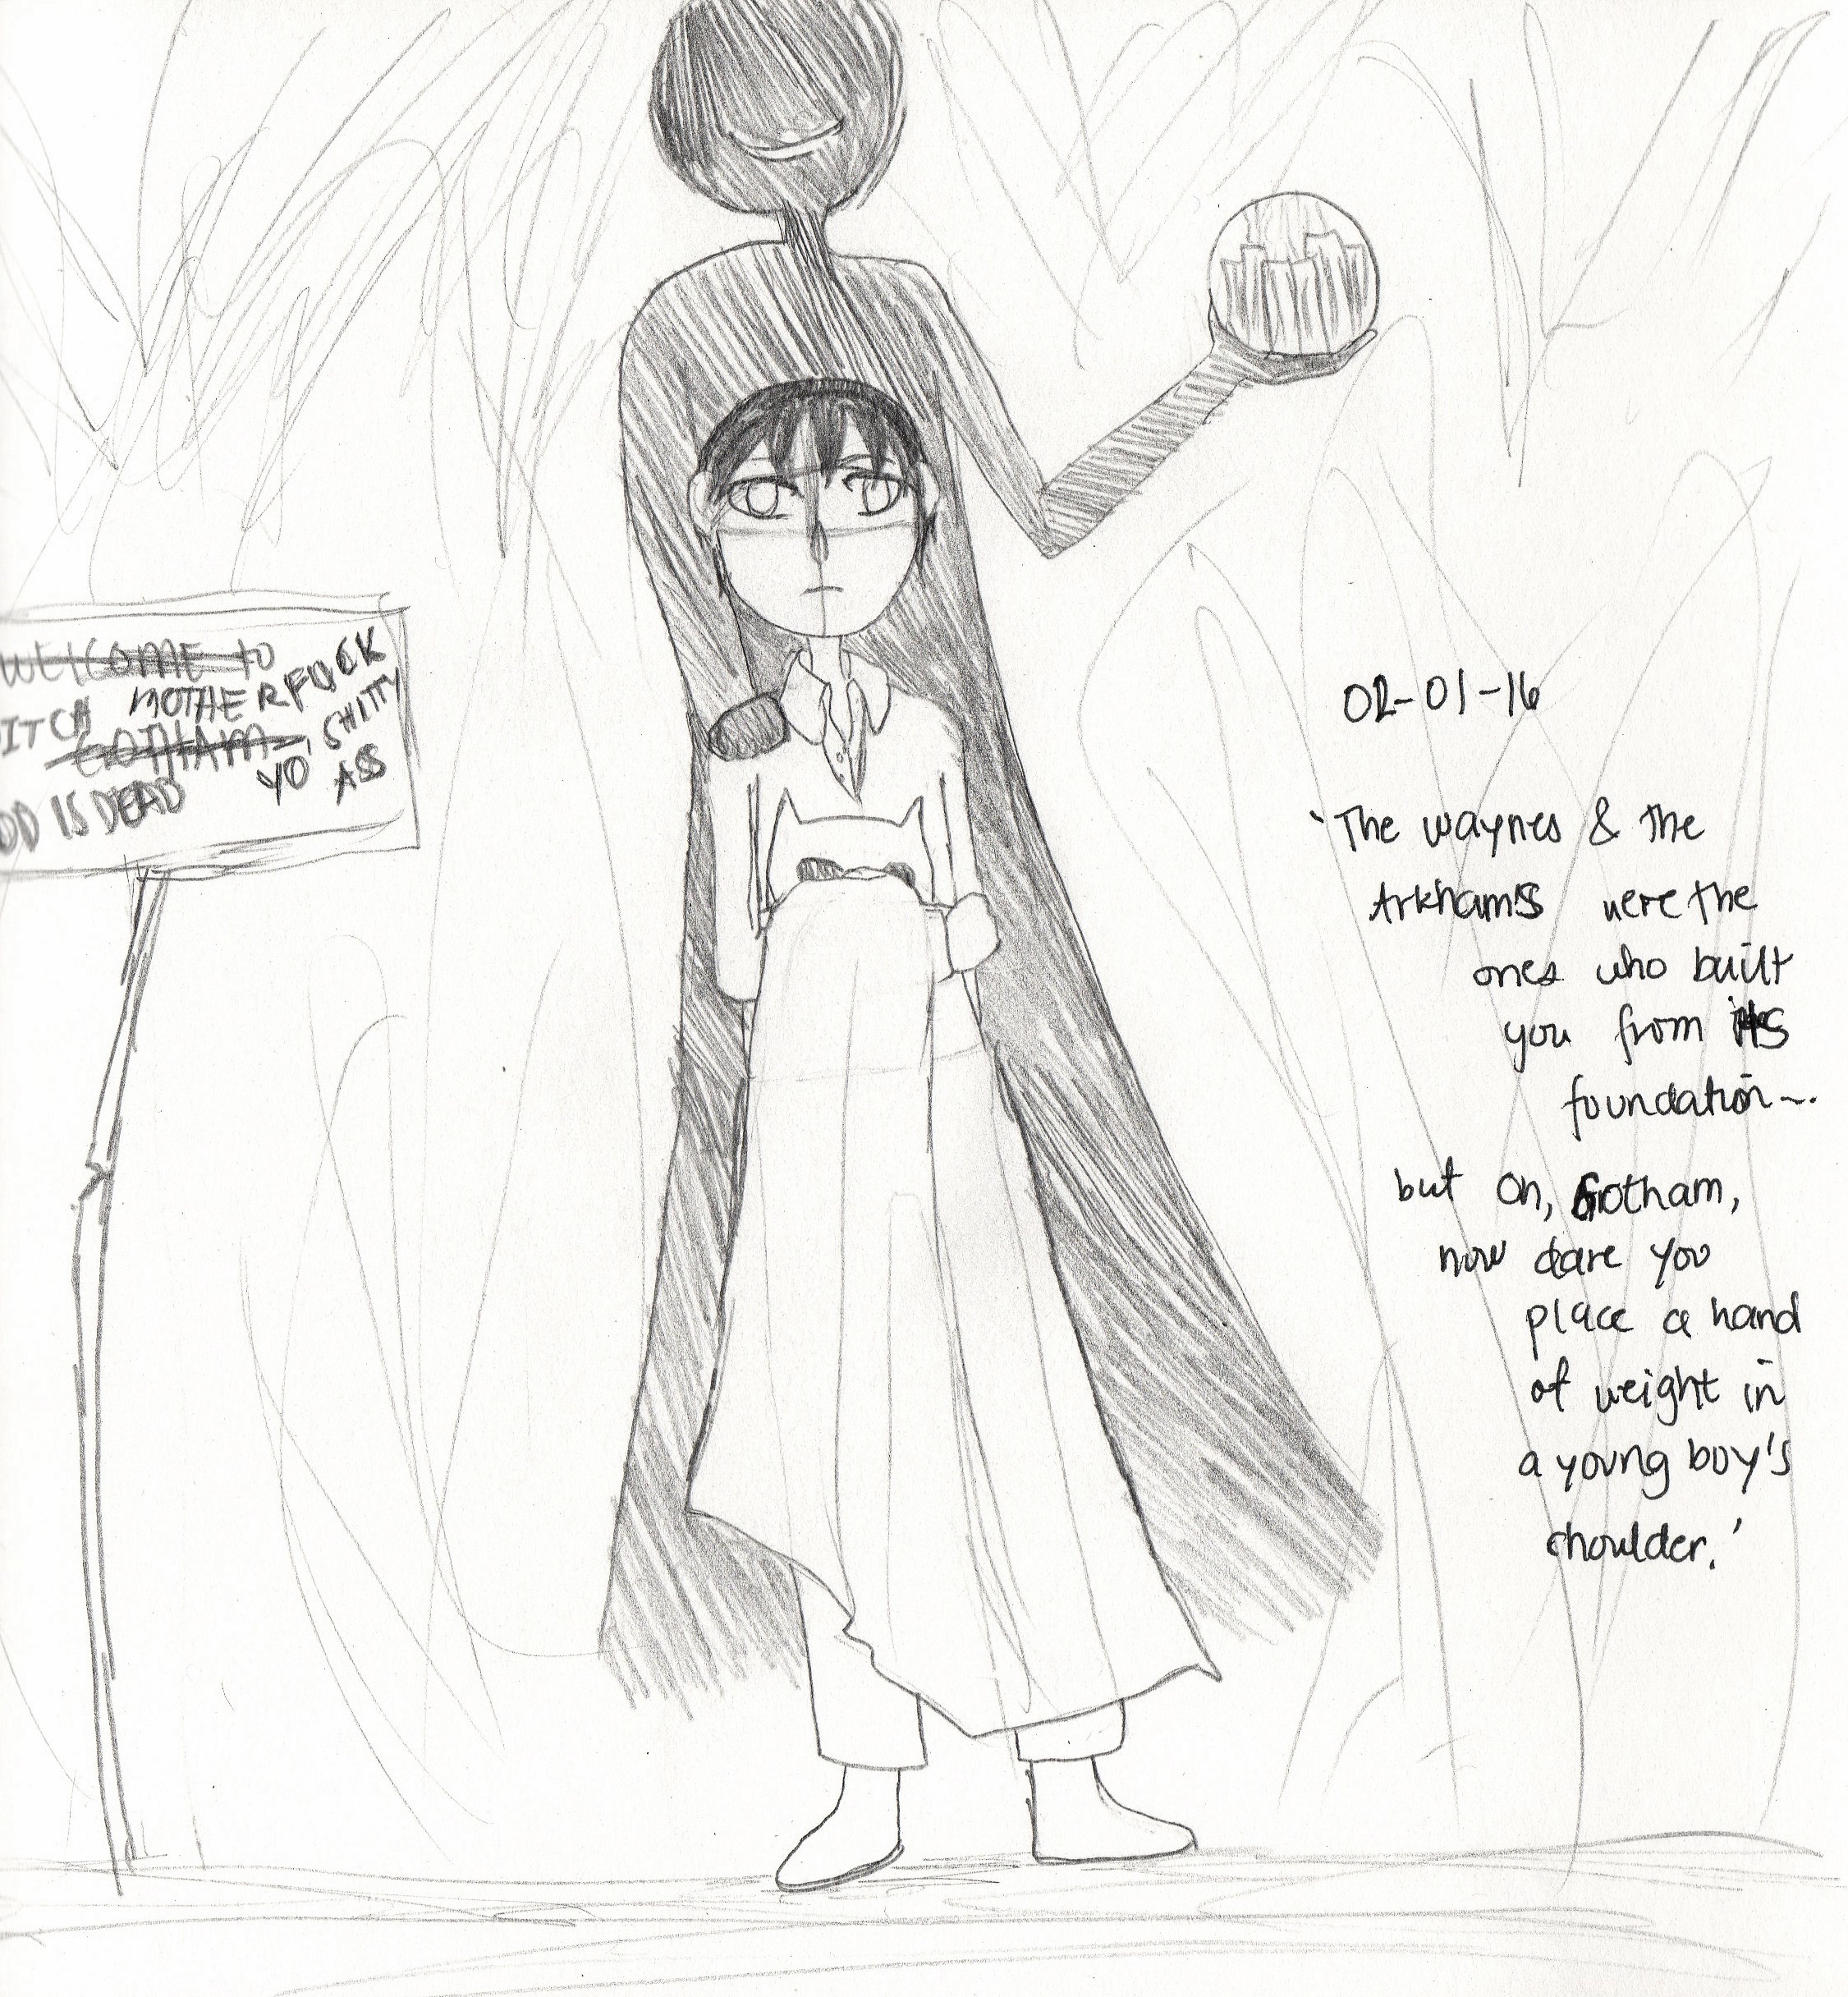 WElCOME to
ITCH MOTHERFUCK
GOTHAM, SHITTY
OD IS DEAD YO ASS
02-01-16
'The waynes & the
Arkhams were the
ones who built
you from its
foundation~.
but oh, Gotham,
how dare you
place a hand
of weight in
a young boy's
shoulder.'